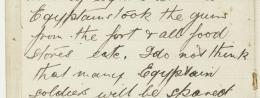 Egyptains took the guns
from the fort & all food
stores etc. I do not think
that many Egyptain
soldiers will be spared